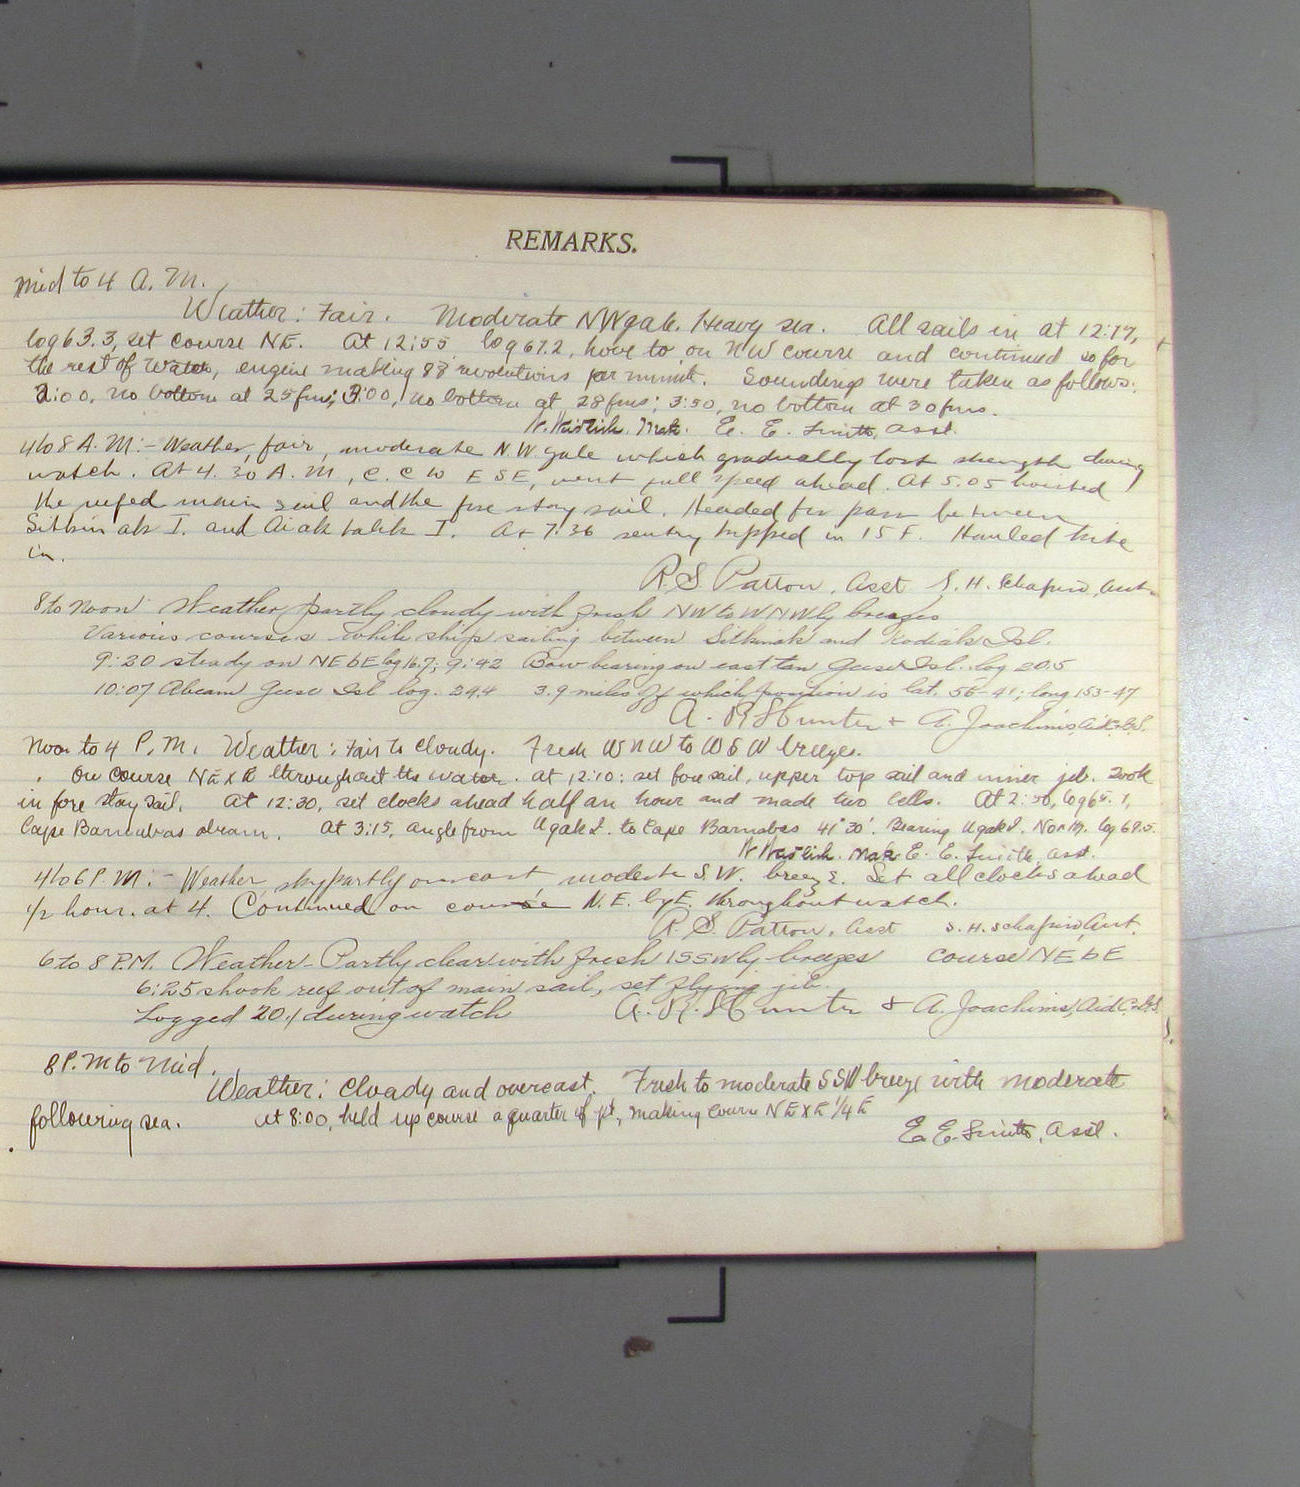 REMARKS.
Mid to 4 A.M.
Weather: Fair. Moderate NW gale. Heavy sea. All sails in at 12:17,
log 63.3, set course NE. At 12:55 log 67.2, hove to on NW course and continued so for
the rest of watch, engine making 88 revolutions per minute. Soundings were taken as follows:
2:00, no bottom at 25 fms; 3:00, no bottom at 28 fms; 3:50, no bottom at 30 fms.
Mate. E. E. Smith, asst.
4 to 8 A.M:- Weather, fair, moderate NW gale which gradually lost strength during
watch. At 4.30 A.M, C.C W ESE, went full speed ahead. At 5.05 hoisted
the reefed main sail and the fore stay sail. Headed for pass between
Sitkinak I. and Aiaktalik I. At 7:36 sentry tripped in 15 F. Hauled kite
in.
R S Patton, Asst S. H. Schafiro, Aut.
8 to Noon Weather partly cloudy with fresh NW to WNWly breezes
Various courses while ship sailing between Sitkinak and Kodiak Isl.
9:20 steady on NE b E log 16.7; 9:42 Bow bearing on east tan Geese Isl. log 20.5
10:07 Abeam Geese Isl log. 24.4 3.9 miles off which position is lat. 56-41; long 153-47
A. R. Hunter & A. Joachims, Aid C.&G.S.
Noon to 4 P.M. Weather: Fair to Cloudy. Fresh WNW to WSW breezes.
On course NE x E throughout the watch. At 12:10: set fore sail, upper top sail and inner jib. Took
in fore stay sail. At 12:30, set clocks ahead half an hour and made two bells. At 2:50, log 65.1,
Cape Barnabas abeam. At 3:15, angle from Ugak I. to Cape Barnabas 41° 30'. Bearing Ugak I. North. log 69.5.
Mate E. E. Smith, asst.
4 to 6 P.M:- Weather, sky partly overcast moderate S.W. breeze. Set all clocks ahead
1/2 hour. at 4. Continued on course N.E. by E. throughout watch.
R. S. Patton, Asst S. H. Schafiro, Aut.
6 to 8 P.M. Weather- Partly clear with fresh SSWly breezes Course NE b E
6:25 shook reef out of main sail, set flying jib.
Logged 20.1 during watch A. R. Hunter & A. Joachims, Aid C.&G.S.
8 P.M to Mid.
Weather: Cloudy and overcast. Fresh to moderate SSW breeze with moderate
following sea. At 8:00, held up course a quarter of pt, making course NE x E 1/4 E
E. E. Smith, Asst.